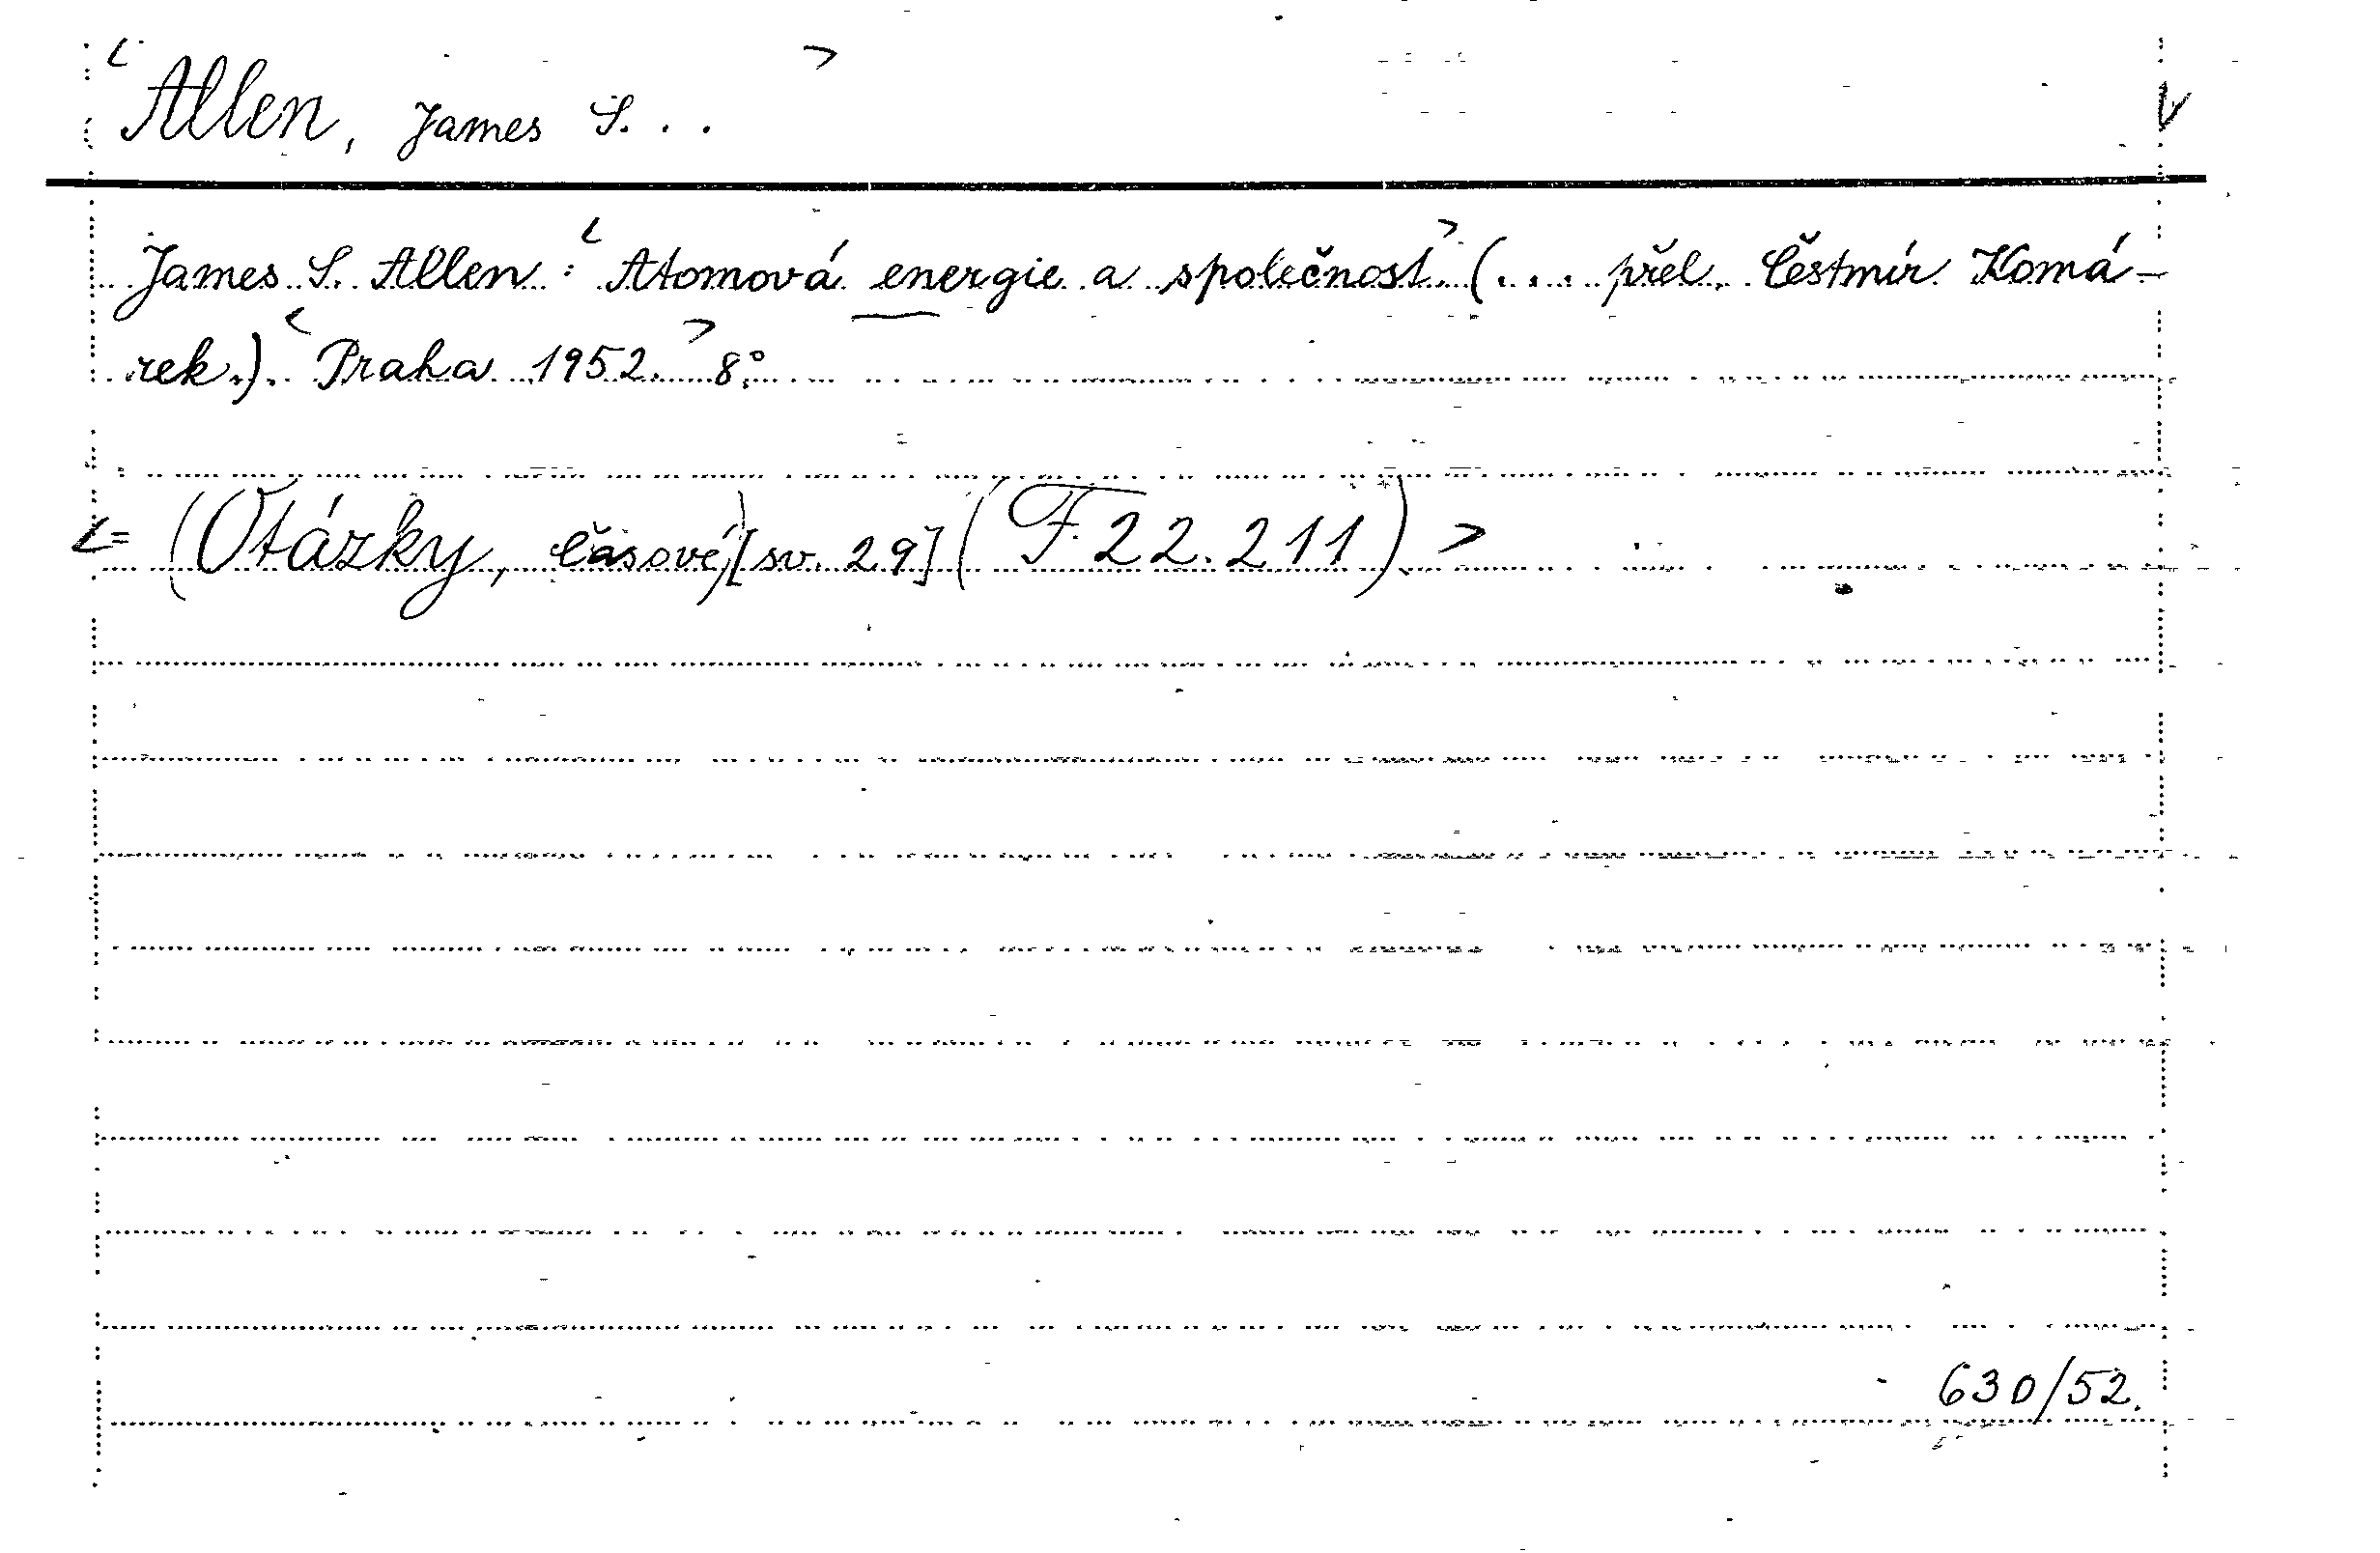 < Allen, James S. . . >
V
James S. Allen: <Atomová energie a společnost> (. . . . přel. Čestmír Komá-
rek.). <Praha 1952.> 8°.
<= (Otázky, časové) [sv. 29] (F 22.211) >
630/52.